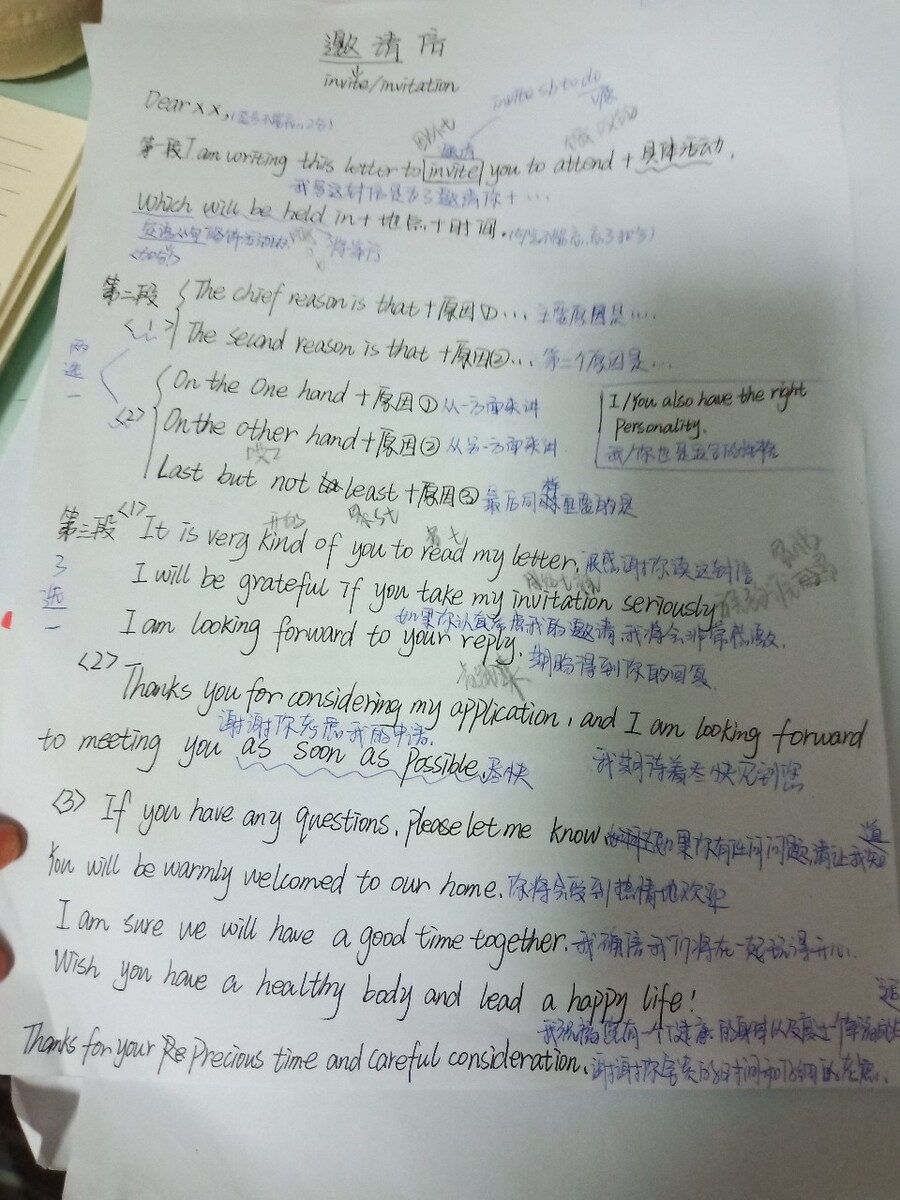 邀请信
invite/invitation
invite sb to do
Dear xx,
邀请
第一段 I am writing this letter to invite you to attend + 具体活动.
我写这封信是为了邀请你+…
Which will be held in + 地点 + 时间.
<加分>
第二段 The chief reason is that + 原因①… 主要原因是….
<1> The second reason is that + 原因②… 第二个原因是…
两选一
<2> On the One hand + 原因① 从一方面来讲
On the other hand + 原因② 从另一方面来讲
Last but not least + 原因③ 最后同样重要的是
I/You also have the right
Personality.
我/你也是
第三段 <1> It is very kind of you to read my letter. 很感谢你读这封信
3选一
I will be grateful if you take my invitation seriously
如果你认真考虑我的邀请,我将会非常感激.
I am looking forward to your reply. 期盼得到你的回复
<2> Thanks you for considering my application, and I am looking forward
谢谢你考虑我的申请.
to meeting you as soon as possible. 尽快
我期待着尽快见到您
<3> If you have any questions. Please let me know. 如果你有任何问题,请让我知道
You will be warmly welcomed to our home. 你将会受到热情地欢迎
I am sure we will have a good time together. 我确信我们将在一起玩得开心.
Wish you have a healthy body and lead a happy life!
我祝福您有一个健康的身体以及度过一个幸福的生活
Thanks for your Re Precious time and careful consideration. 谢谢你宝贵的时间和仔细的考虑.